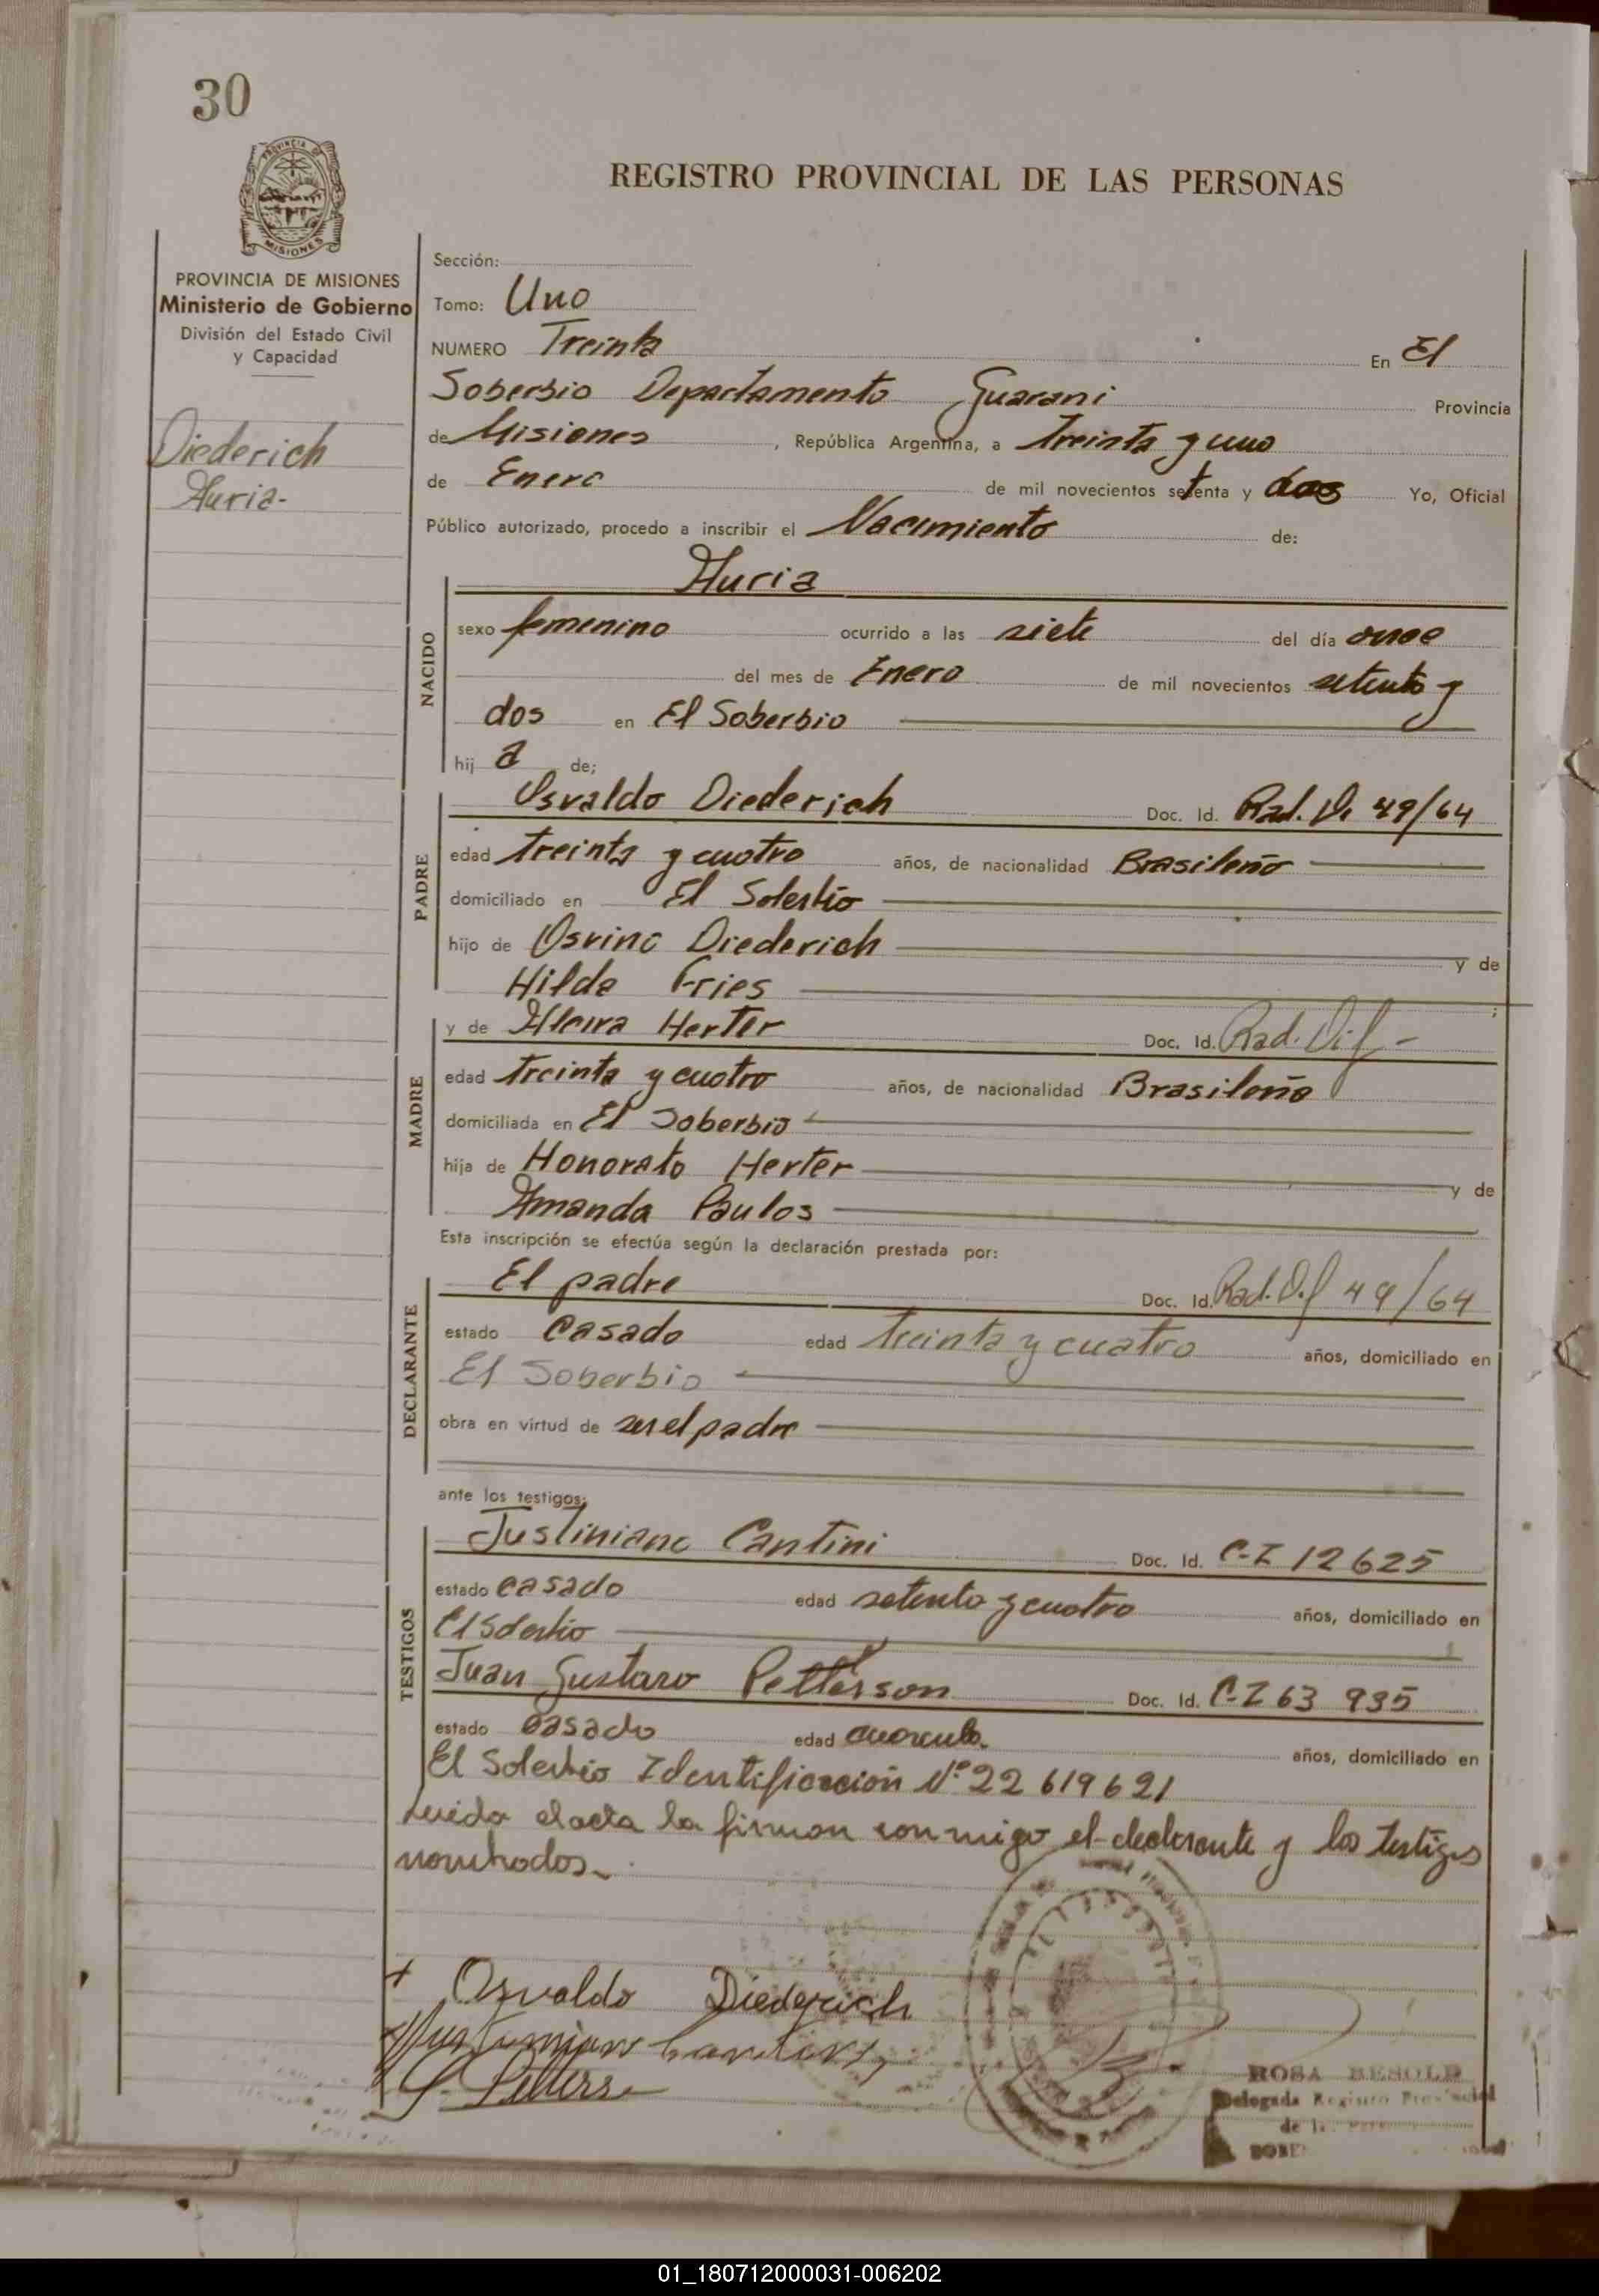 30
PROVINCIA DE
MISIONES
REGISTRO PROVINCIAL DE LAS PERSONAS
PROVINCIA DE MISIONES
Ministerio de Gobierno
División del Estado Civil
y Capacidad
Diederich
Auria-
Sección:
Tomo: Uno
NUMERO Treinta En El
Soberbio Departamento Guarani Provincia
de Misiones, República Argentina, a treinta y uno
de Enero de mil novecientos setenta y dos Yo, Oficial
Público autorizado, procedo a inscribir el Nacimiento de:
Auria
NACIDO
sexo femenino ocurrido a las siete del día once
del mes de Enero de mil novecientos setenta y
dos en El Soberbio
hij a de;
PADRE
Osvaldo Diederich Doc. Id. Rad. 49/64
edad treinta y cuatro años, de nacionalidad Brasileño
domiciliado en El Soberbio
hijo de Osvino Diederich y de
Hilda Fries ;
MADRE
y de Herter Doc. Id. Rad. Dif -
edad treinta y cuatro años, de nacionalidad Brasileña
domiciliada en El Soberbio
hija de Honorato Herter y de
Amanda Paulos
Esta inscripción se efectúa según la declaración prestada por:
DECLARANTE
El padre Doc. Id. Rad. Dif 49/64
estado casado edad treinta y cuatro años, domiciliado en
El Soberbio
obra en virtud de ser el padre
ante los testigos:
TESTIGOS
Justiniano Cantini Doc. Id. C-I 12625
estado casado edad setenta y cuatro años, domiciliado en
El Soberbio
Juan Gustavo Petterson Doc. Id. C-I 63 935
estado casado edad cuarenta. años, domiciliado en
El Soberbio Identificación Nº 22 619621
Leida el acta la firman conmigo el declarante y los testigos
nombrados-
+ Osvaldo Diederich
ROSA BESOLD
Delegada Registro Provincial
de las
01_180712000031-006202